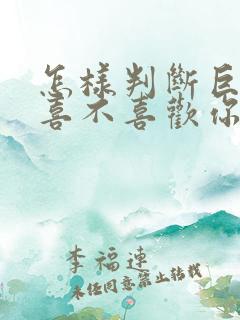 怎樣判斷巨
喜不喜歡你
李福連
未經同意禁止轉載